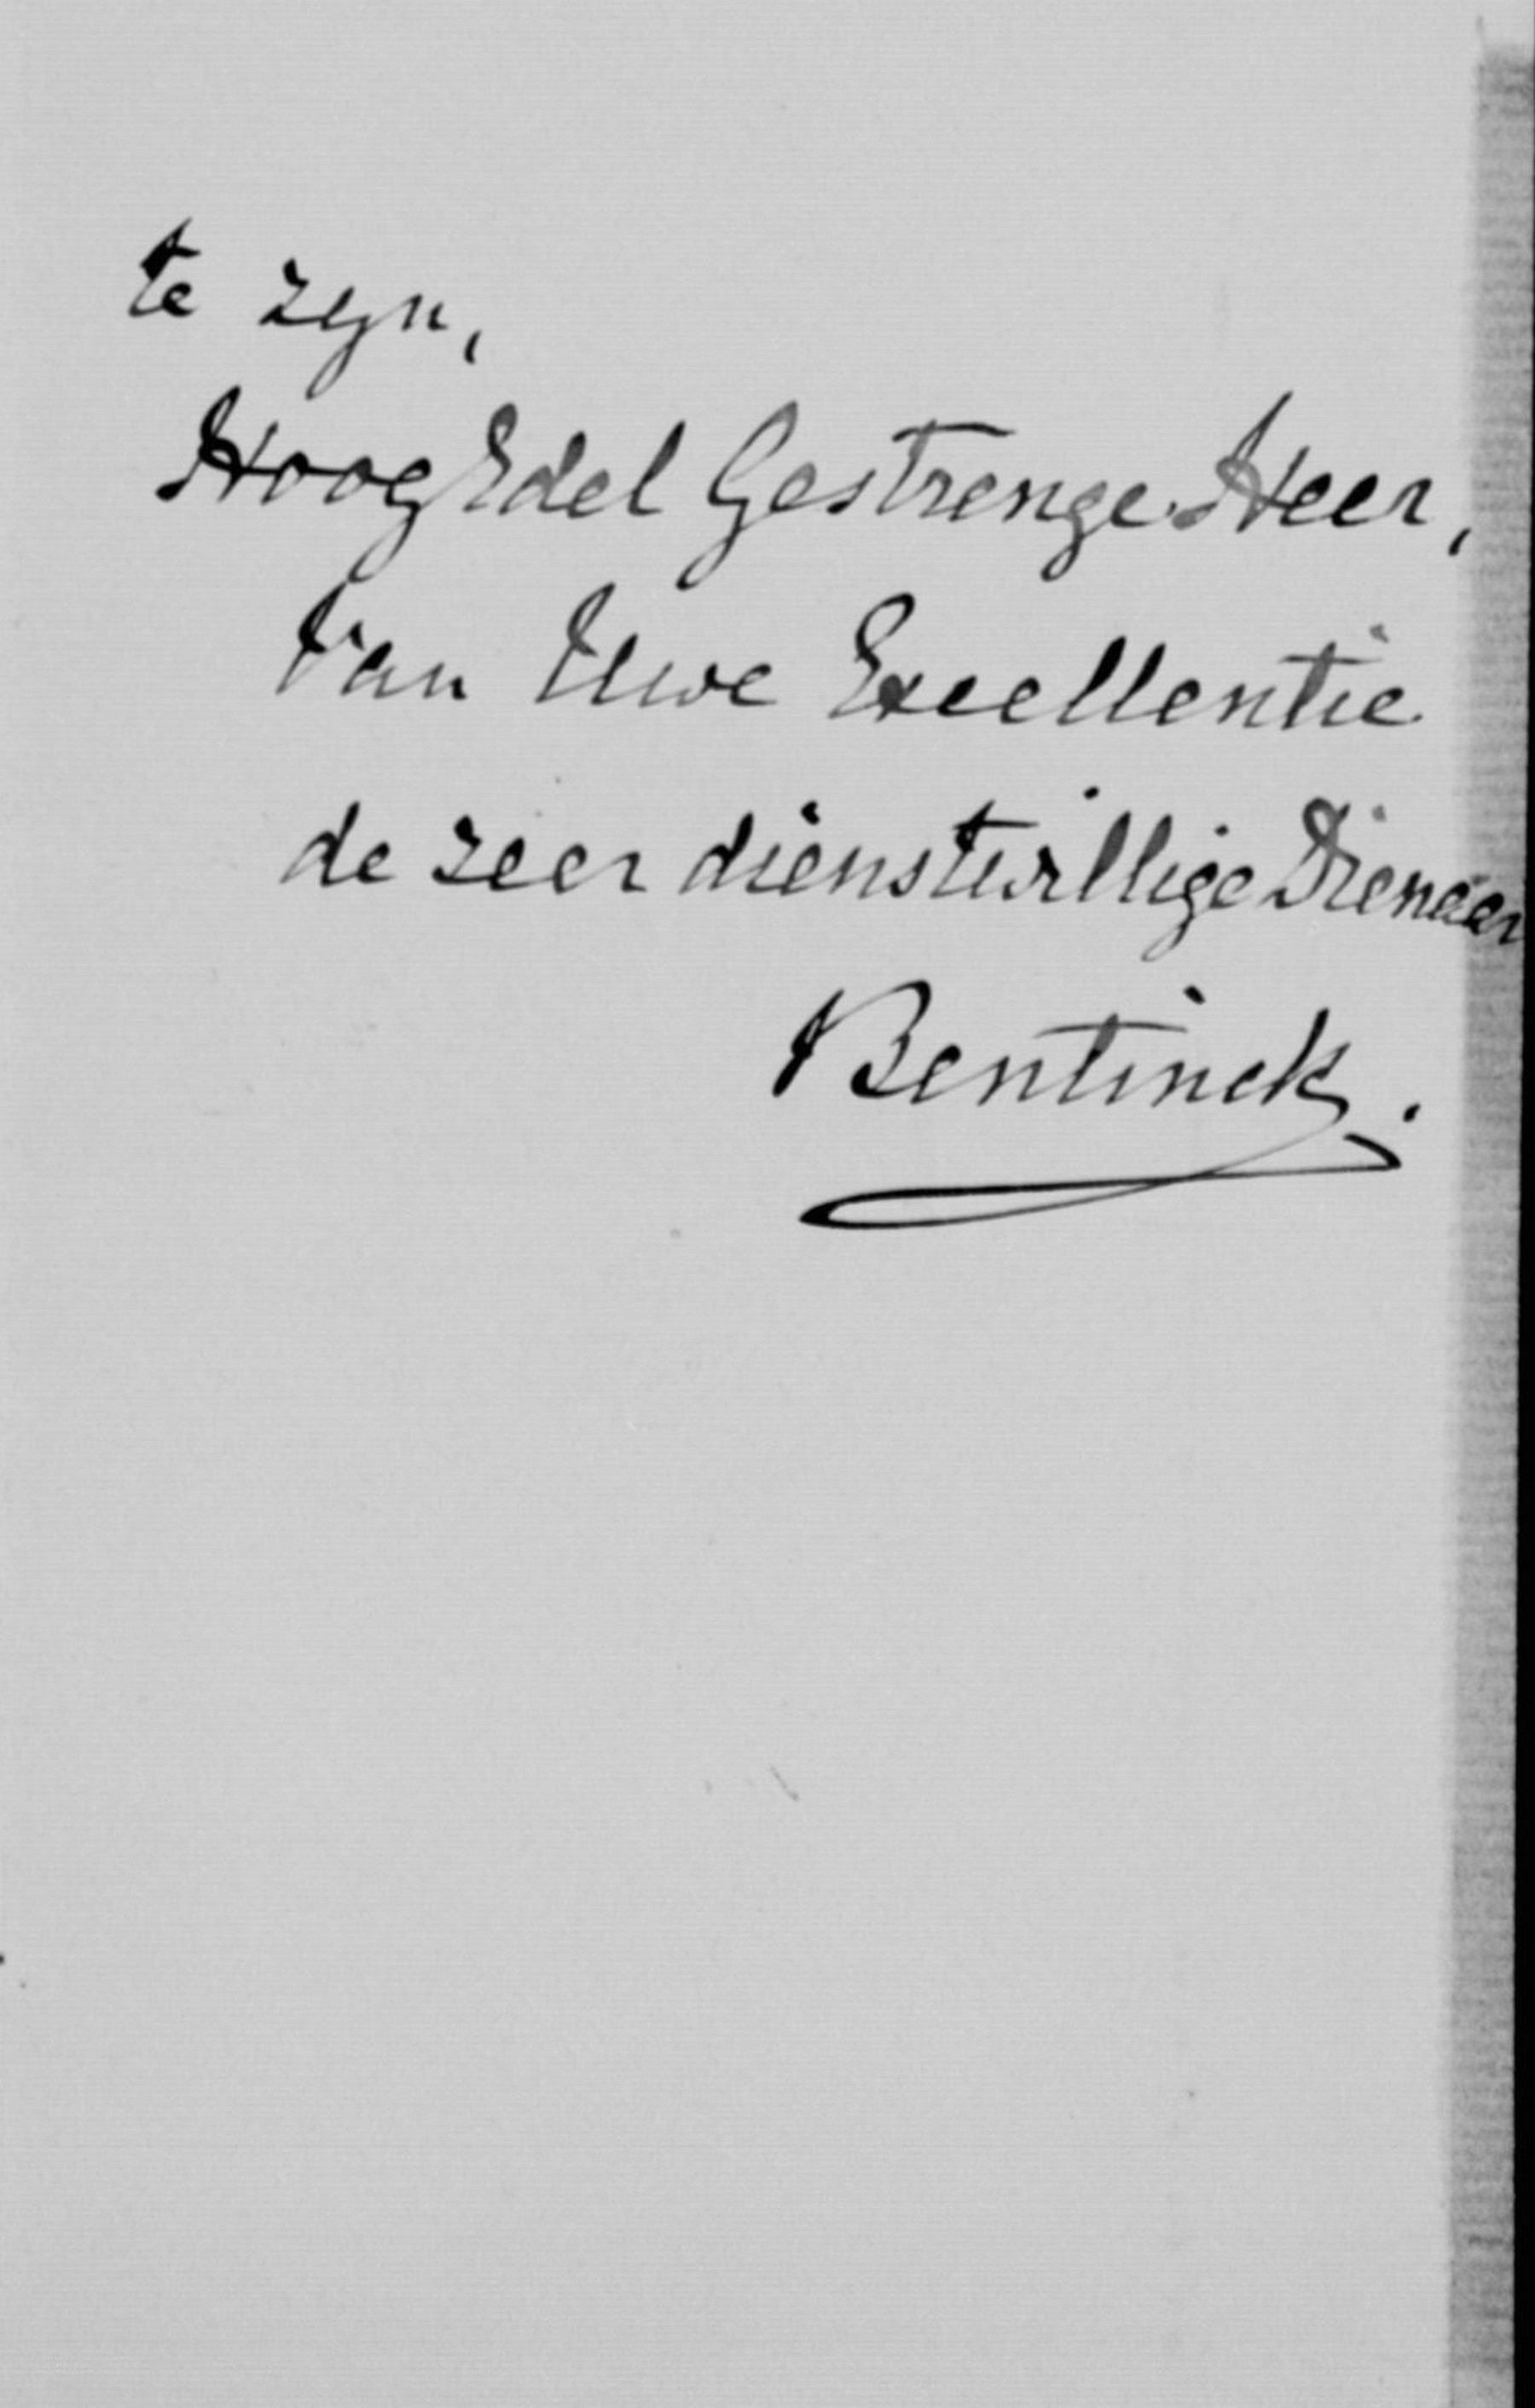 te zyn,
HoogEdel Gestrenge Heer,
Van Uwe Excellentie
de zeer dienstwillige Dienaar
Bentinck.